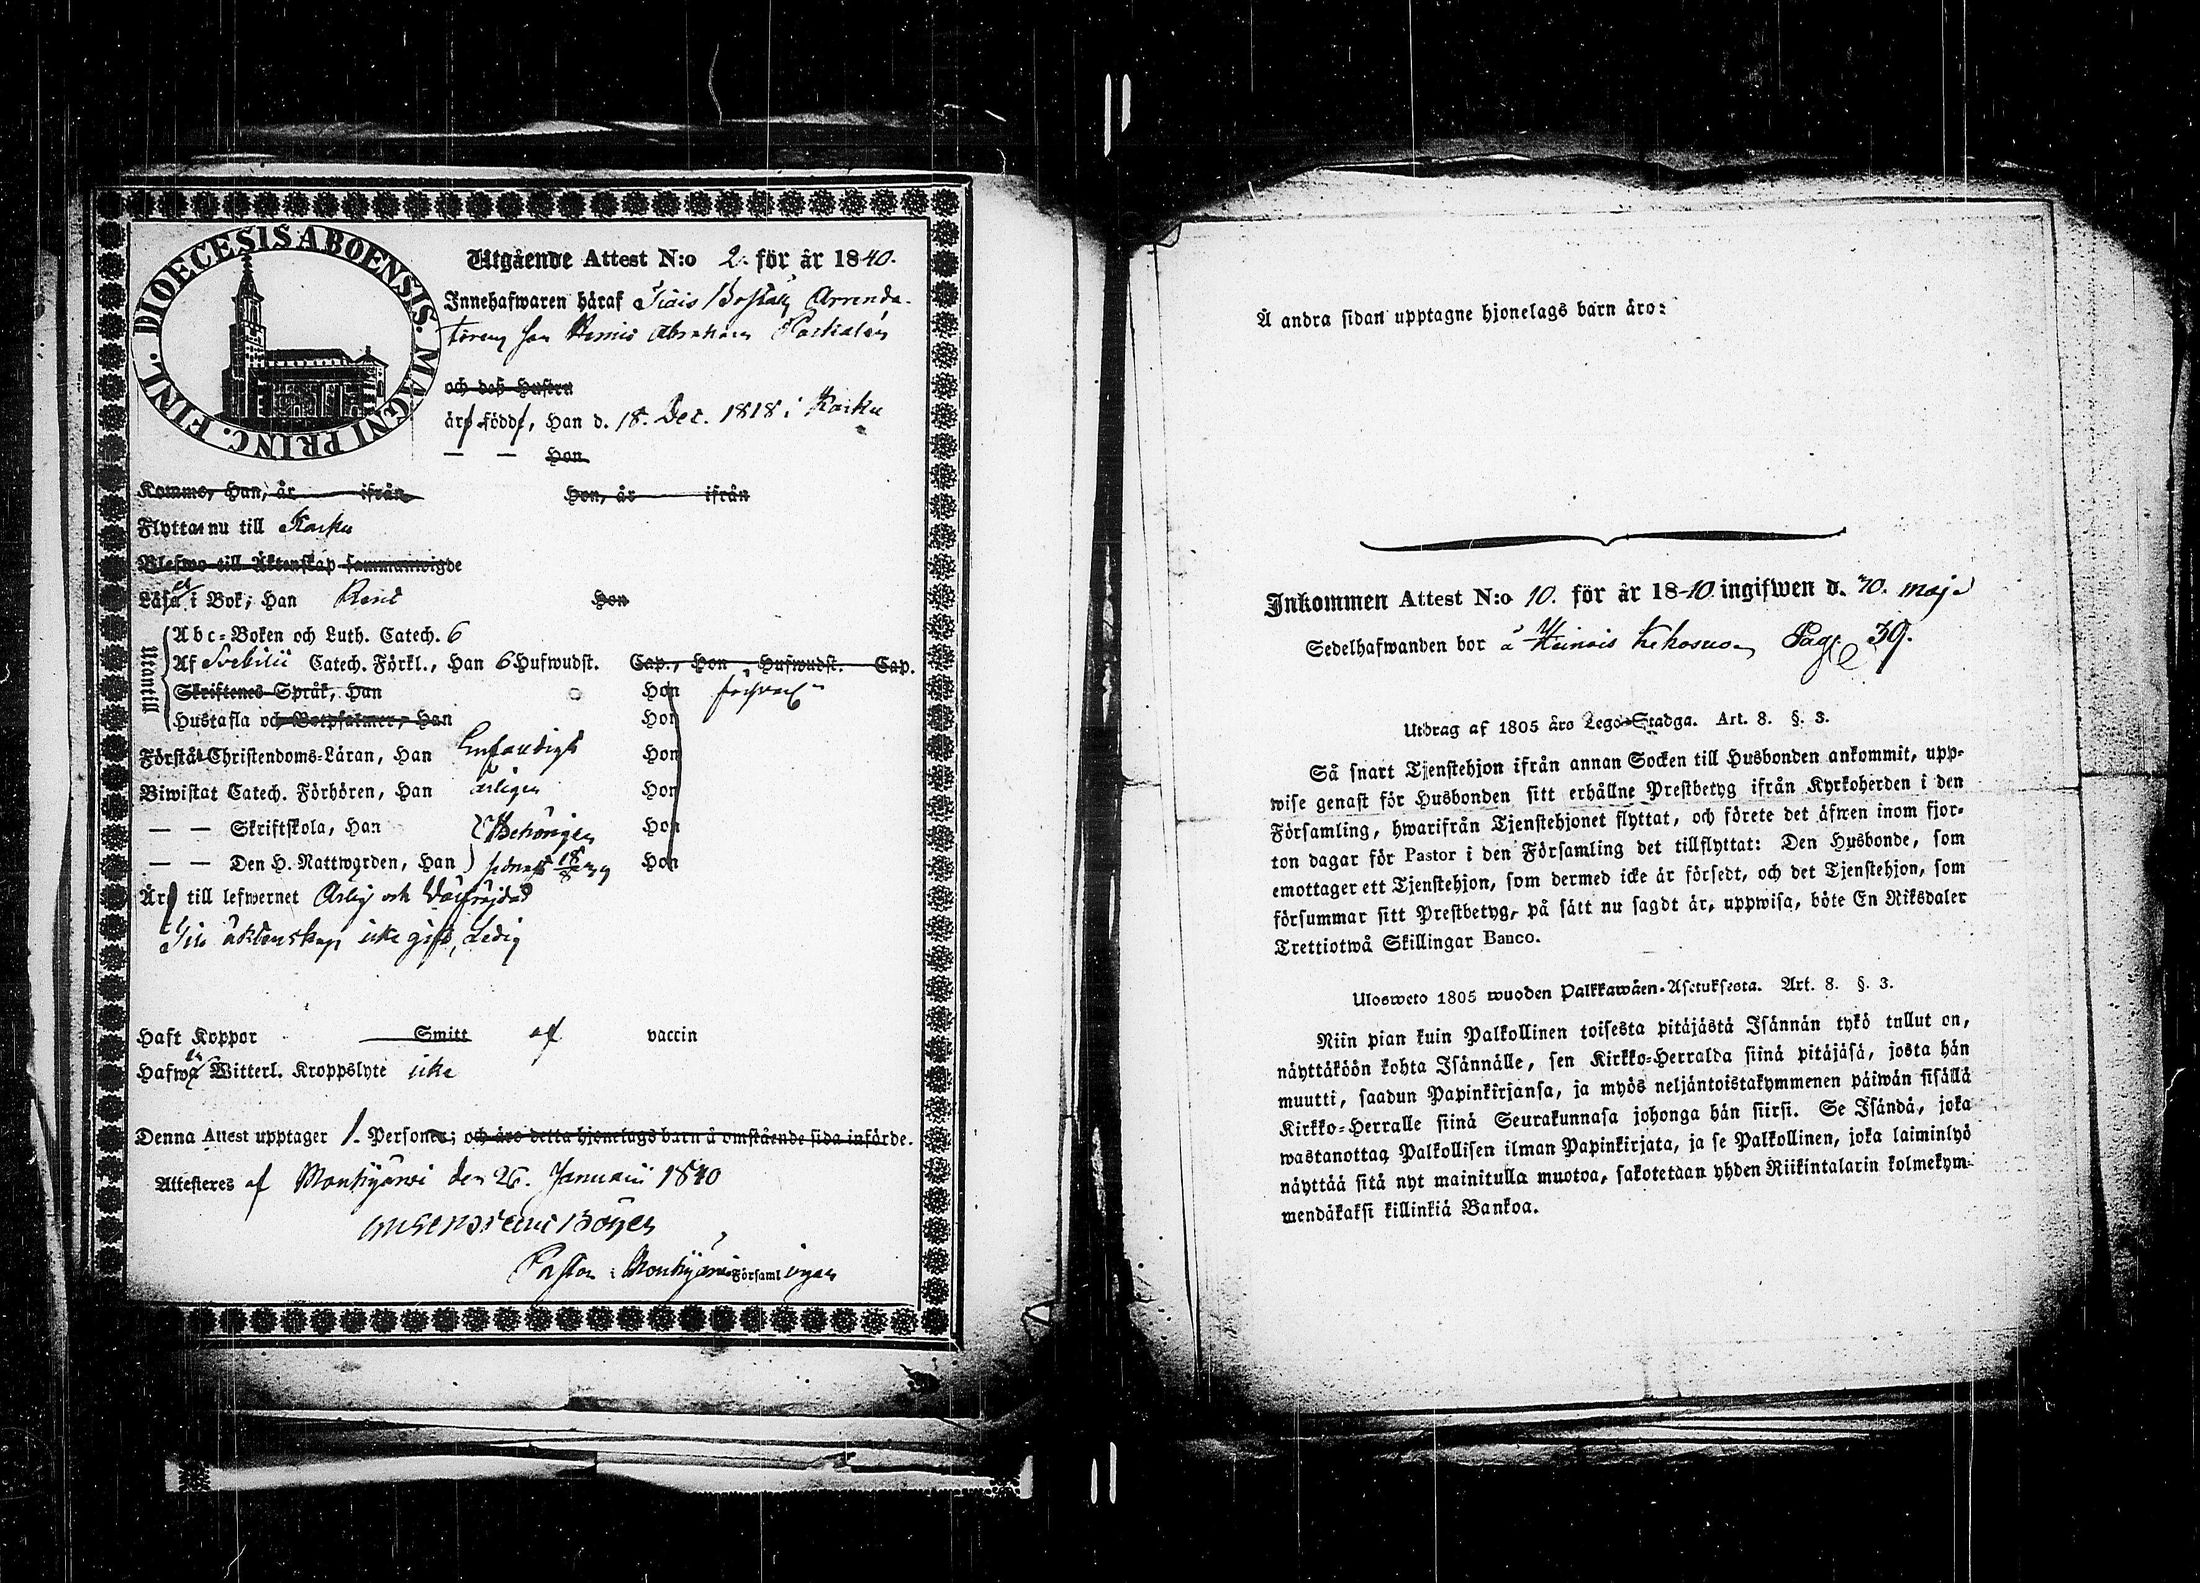 DIOECESIS ABOENSIS. MAGNI PRINC. FINL.
Utgående Attest N:o 2. för år 1840.
Innehafwaren håraf Arrenda-
torens son Abraham
och dess Hustru
äro född, Han d. 18. Dec. 1818 i Karku
— — Hon
Kommo, Han, år ifrån Hon, år ifrån
Flyttar nu till Karku
Blefwo till Äktenskap sammanwigde
Läsa i Bok; Han Rent Hon
Utantill
Abc-Boken och Luth. Catech. 6
Af Svebilii Catech. Förkl., Han 6 Hufwudst. Cap., Hon Hufwudst. Cap.
Skriftenes Språk, Han Hon
Hustafla och Botpsalmer, Han Hon
Förstår Christendoms-Läran, Han Hon
Biwistat Catech. Förhören, Han årligen Hon
— — Skriftskola, Han Behörigen Hon
— — Den H. Nattwarden, Han sednast Hon
Är till lefwernet Ärlig och Wälfrejdad
Till äktenskap icke gift, Ledig
Haft Koppor Smitt af vaccin
Hafwa Witterl. Kroppslyte icke
Denna Attest upptager 1. Personer; och äro detta hjonelags barn å omstående sida införde.
Attesteres af Mouhijärvi den 26. Januarii 1840
Pastor i Mouhijärvi Församlingen
Å andra sidan upptagne hjonelags barn äro:
Inkommen Attest N:o 10. för år 1840 ingifwen d. maji
Sedelhafwanden bor å Heinois Kekosuo Pag: 39.
Utdrag af 1805 års Lego-Stadga. Art. 8. §. 3.
Så snart Tjenstehjon ifrån annan Socken till Husbonden ankommit, upp-
wise genast för Husbonden sitt erhållne Prestbetyg ifrån Kyrkoherden i den
Församling, hwarifrån Tjenstehjonet flyttat, och förete det äfwen inom fjor-
ton dagar för Pastor i den Församling det tillflyttat: Den Husbonde, som
emottager ett Tjenstehjon, som dermed icke är försedt, och det Tjenstehjon, som
försummar sitt Prestbetyg, på sätt nu sagdt är, uppwisa, böte En Riksdaler
Trettiotwå Skillingar Banco.
Ulosweto 1805 wuoden Palkkawäen-Asetuksesta. Art. 8. §. 3.
Niin pian kuin Palkollinen toisesta pitäjästä Isännän tykö tullut on,
näyttäköön kohta Isännälle, sen Kirkko-Herralda siinä pitäjäsä, josta hän
muutti, saadun Papinkirjansa, ja myös neljäntoistakymmenen päiwän sisällä
Kirkko-Herralle siinä Seurakunnasa johonga hän siirsi. Se Isändä, joka
wastanottaa Palkollisen ilman Papinkirjata, ja se Palkollinen, joka laiminlyö
näyttää sitä nyt mainitulla muotoa, sakotetaan yhden Riikintalarin kolmekym-
mendäkaksi killinkiä Bankoa.